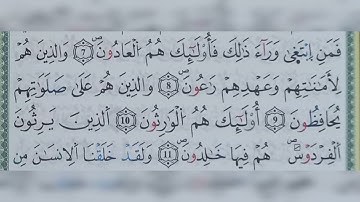 فَمَنِ اِ۪بْتَغ۪ىٰ وَرَآءَ ذَٰلِكَ فَأُوْلَٰٓئِكَ هُمُ اُ۬لْعَادُونَۖ 7 وَالذِينَ هُمْ
لِأَمَٰنَٰتِهِمْ وَعَهْدِهِمْ رَٰعُونَۖ 8 وَالذِينَ هُمْ عَلَىٰ صَلَوَٰتِهِمْ
يُحَافِظُونَۖ 9 أُوْلَٰٓئِكَ هُمُ اُ۬لْوَٰرِثُونَ 10 اَ۬لذِينَ يَرِثُونَ
اَ۬لْفِرْدَوْسَۖ هُمْ فِيهَا خَٰلِدُونَۖ 11 وَلَقَدْ خَلَقْنَا اَ۬لِانسَٰنَ مِن